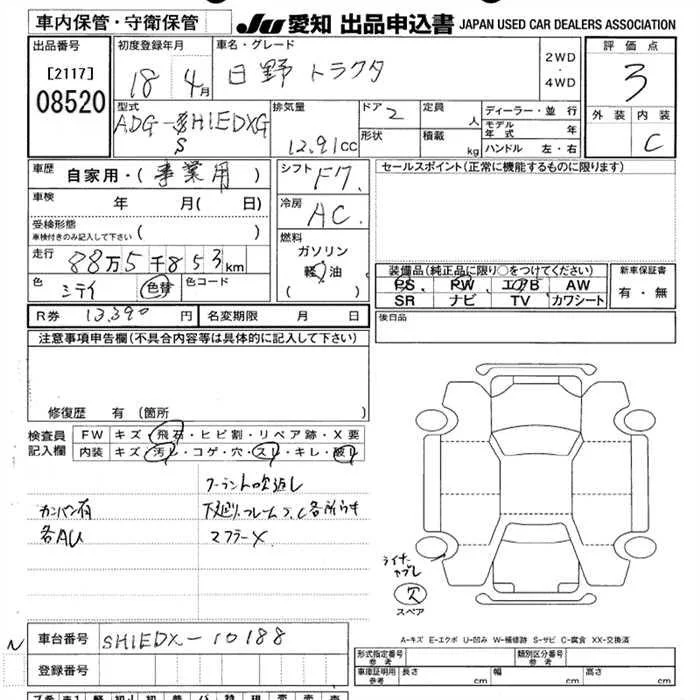 車内保管・守衛保管
JU 愛知 出品申込書 JAPAN USED CAR DEALERS ASSOCIATION
出品番号
[2117]
08520
初度登録年月
18 4月
車名・グレード
日野 トラクタ
2WD
・
4WD
評価点
3
外装 内装
C
型式
ADG-SH1EDXG
S
排気量
12.91cc
ドア 2
形状
定員 人
積載 kg
ディーラー・並行
モデル年式 年
ハンドル 左・右
車歴 自家用・(事業用)
車検 年 月( 日)
受検形態
車検付きのみ記入して下さい ( )
走行 88万5千853km
色 シテイ 色替 色コード
シフト F7
冷房 AC
燃料
ガソリン
軽油
( )
セールスポイント(正常に機能するものに限ります)
装備品(純正品に限り○をつけてください)
PS PW エアB AW
SR ナビ TV カワシート
新車保証書
有・無
R券 13,390円 名変期限 月 日
後日品
注意事項申告欄(不具合内容等は具体的に記入して下さい)
修復歴 有 (箇所 )
検査員記入欄
FW キズ・飛石・ヒビ割・リペア跡・X要
内装 キズ・汚レ・コゲ・穴・スレ・キレ・破レ
クーラント吹返し
カンバン有
下廻り、フレームS、C各所有
各AU
マフラーX
ライナーカブレ
欠
スペア
A-キズ E-エクボ U-凹み W-補修跡 S-サビ C-腐食 XX-交換済
N
車台番号 SH1EDX-10188
登録番号
形式指定番号 参考
類別区分番号 参考
車庫証明用 参考
長さ cm 幅 cm 高さ cm